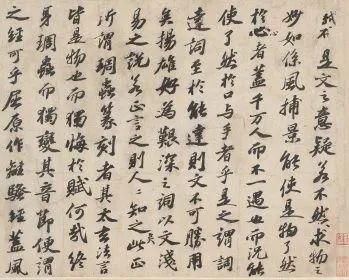 軾不 是文之意疑若不然求物之
妙如係風捕景能使是物了然
於心者蓋千万人而不一遇也而況能
使了然於口与手者乎是之謂詞
達詞至於能達則文不可勝用
矣揚雄好為艱深之詞以文淺
易之說若正言之則人人知之矣此正
所謂琱蟲篆刻者其太玄法言
皆是物也而獨悔於賦何哉終
身琱蟲而獨變其音節便謂
之經可乎屈原作離騷經蓋風